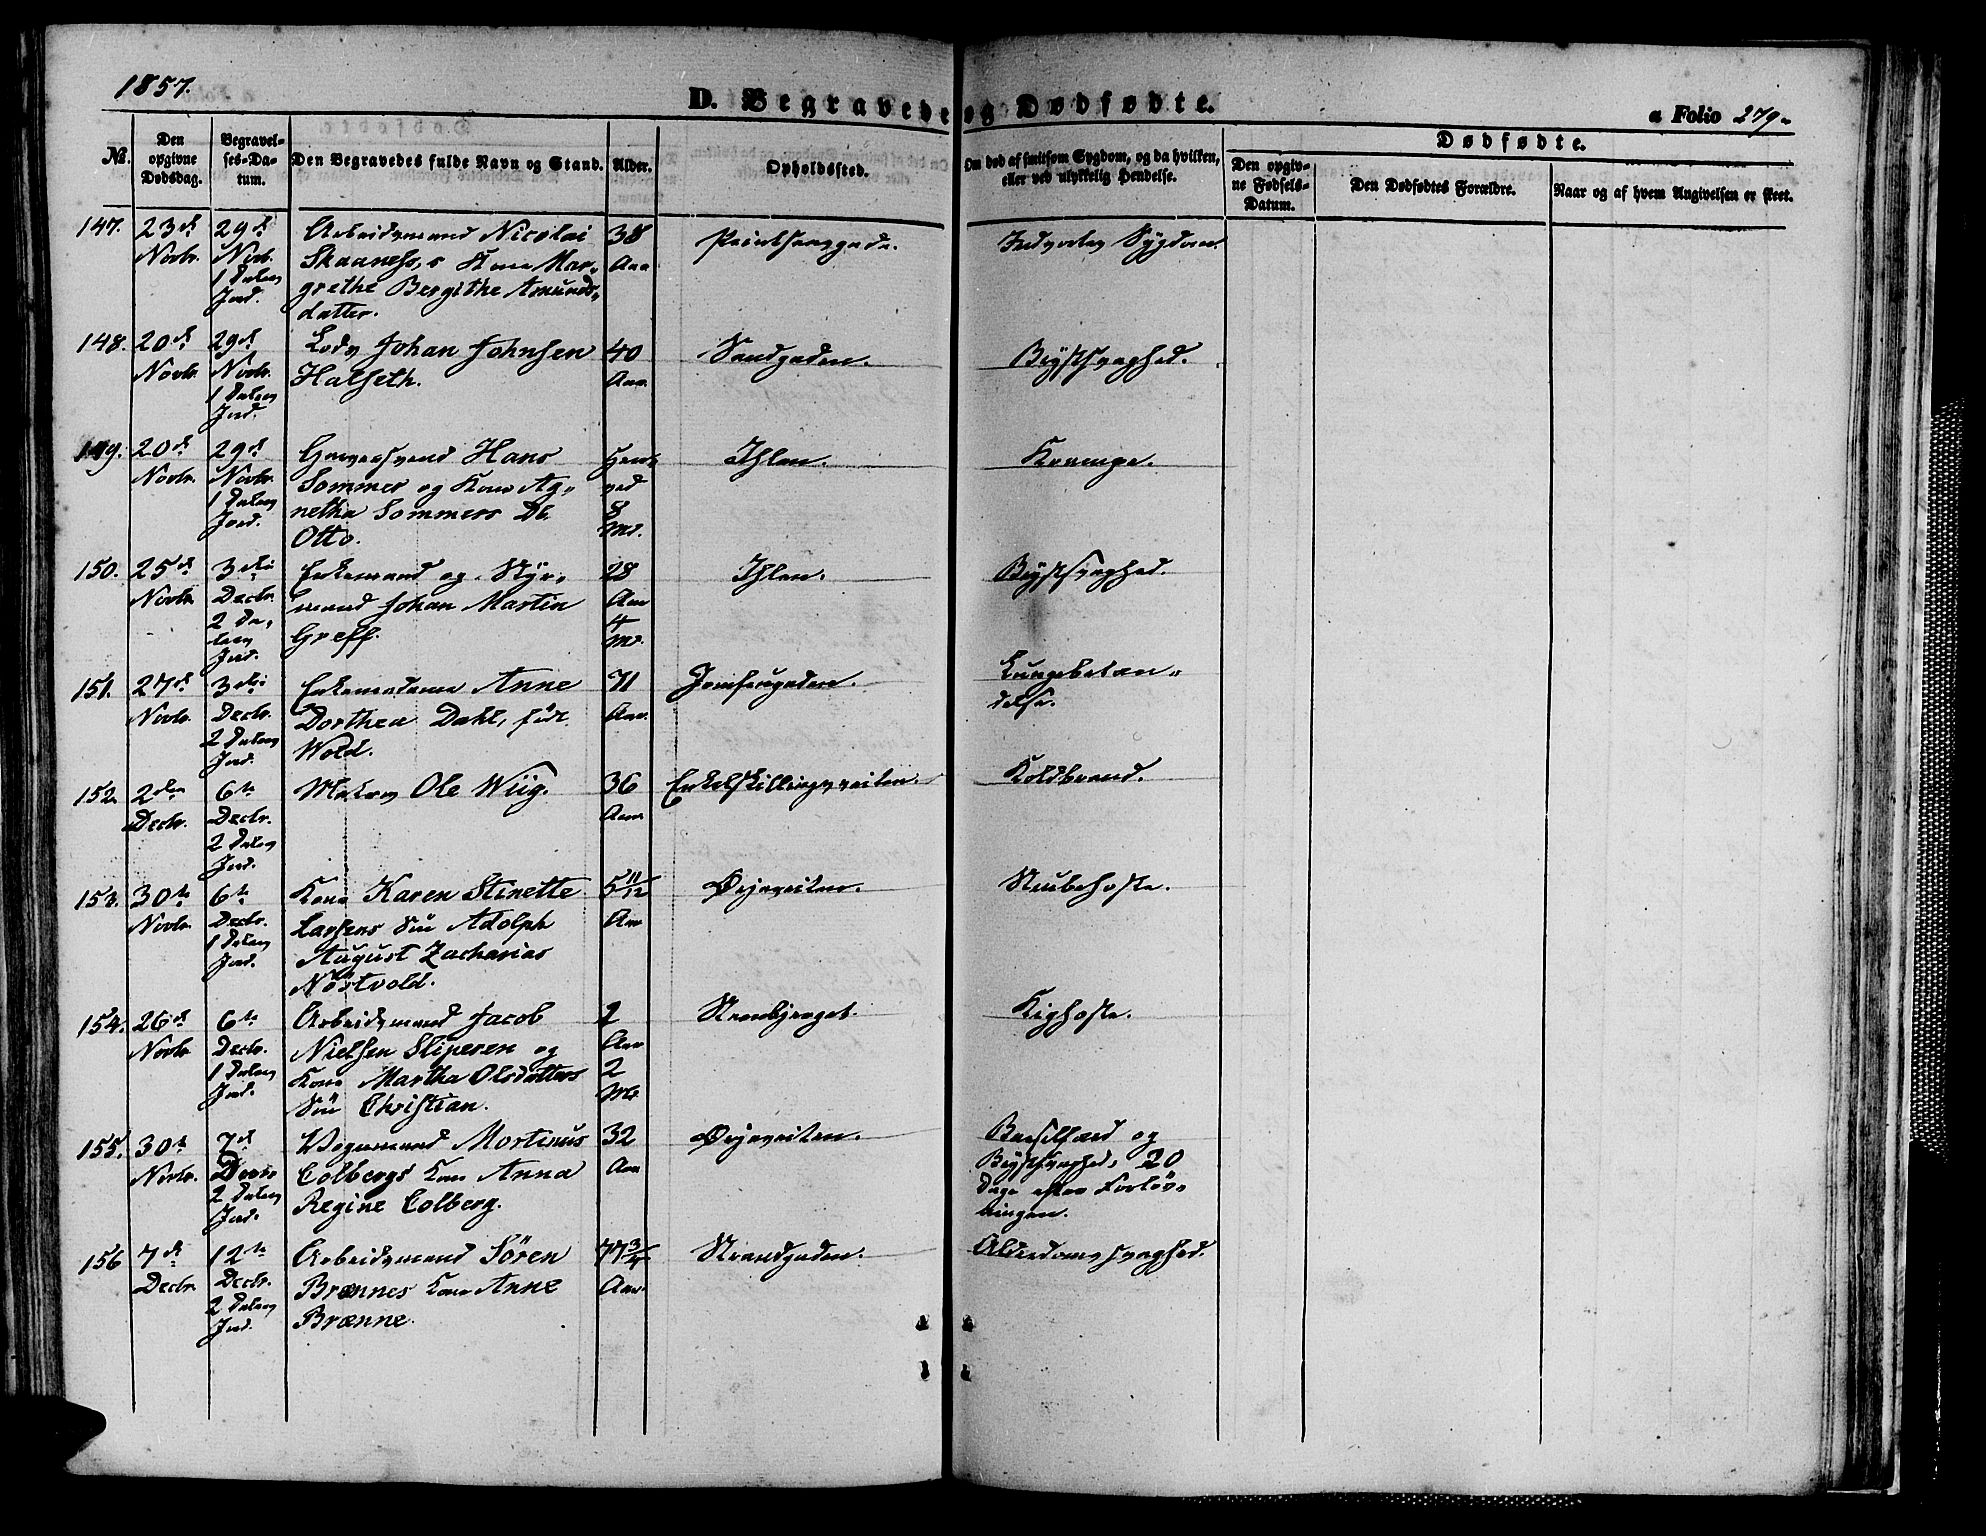 1857.
D. Begravede og Dødfødte.
a Folio 279.
No.
Den opgivne Dødsdag.
Begravelses-Datum.
Den Begravedes fulde Navn og Stand.
Alder.
Opholdssted.
Om død af smitsom Sygdom, og da hvilken,
eller ved ulykkelig Hendelse.
Dødfødte.
Den opgivne Fødsels-Datum.
Den Dødfødtes Forældre.
Naar og af hvem Angivelsen er skeet.
147. 23d Novbr. 29d Novb. 1 Dalers Jord.
Arbeidsmand Nicolai
Skaanes's Kone Mar-
grethe Bergithe Amunds-
datter.
38 Aar
Indvortes Sygdom.
148. 20d Novbr. 29d Novbr. 1 Dalers Jord.
Lods Johan Johnsen
Halseth.
40 Aar.
Sandgaden.
Brystsvaghed.
149. 20d Novbr. 29d Novbr. 1 Dalers Jord.
Garversvend Hans
Sommer og Kone Ag-
netha Sommers
Otto.
8 Md.
Ihlen.
Krampe.
150. 25d Novbr. 3die Decbr. 2 Da-
lers
Jord.
Enkemand og Styr-
mand Johan Martin
Greff.
28 Aar 4 Md.
Ihlen.
Brystsvaghed.
151. 27d Novbr. 3die Decbr. 2 Dalers Jord.
Enkemadame Anne
Dorthea Dahl, født
Wold.
71 Aar.
Jomfrugaden.
Lungebetæn-
delse.
152. 2den Decbr. 6te Decbr. 2 Dalers Jord.
Ole Wiig.
36 Aar.
Enkelskillingsveiten.
Koldbrand.
153. 30te Novbr. 6te Decbr. 1 Dalers Jord.
Kone Karen Stinette
Larsens Søn Adolph
August Zacharias
Nøstvold.
5 11/12 Aar
Ørjaveiten.
Strubehoste.
154. 26d Novbr. 6te Decbr. 1 Dalers Jord.
Arbeidsmand Jacob
Nielsen Sliperen og
Kone Martha Olsdatters
Søn Christian.
2 Aar 2 Md.
Steenbjerget.
Kighoste.
155. 30te Novbr. 7d Decbr 2 Dalers Jord.
Vognmand Mortinus
Colbergs Kone Anna
Regine Colberg.
32 Aar
Ørjaveiten.
Barselfærd og
Brystsvaghed, 20
Dage efter Forløs-
ningen.
156 7d Decbr. 12te Decbr. 2 Dalers Jord.
Arbeidsmand Sören
Brænnes Kone Anne
Brænne.
77 3/4 Aar.
Strandgaden.
Alderdomssvaghed.